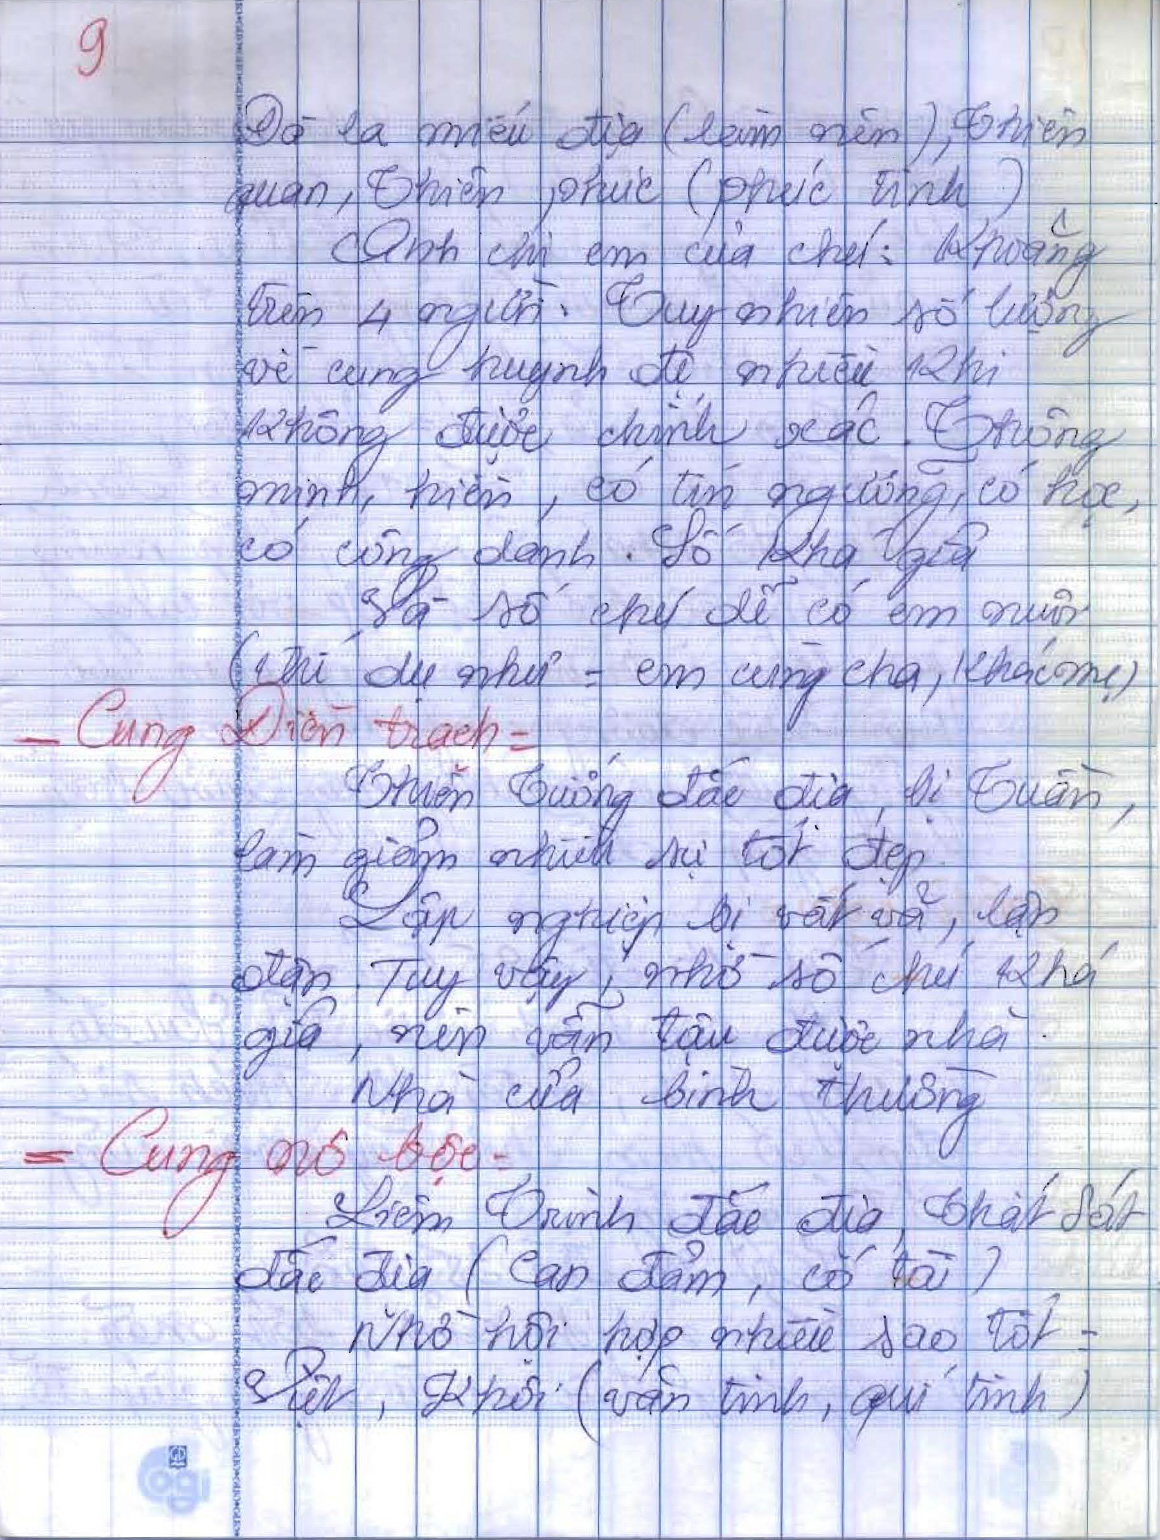 9
Đà la miếu địa (làm nên), Thiên
quan, Thiên phúc (phúc tinh)
Anh chị em của chú: Khoảng
trên 4 người. Tuy nhiên số lượng
về cung huynh đệ nhiều khi
không được chính xác. Thông
minh, hiền, có tín ngưỡng, có học,
có công danh. Số khá giả
Lá số chú dễ có em nuôi
(thí dụ như = em cùng cha, khác mẹ)
- Cung Điền trạch =
Thiên Tướng đắc địa, bị Tuần,
làm giảm nhiều sự tốt đẹp.
Lập nghiệp bị vất vả, lận
đận. Tuy vậy, nhờ số chú khá
giả, nên vẫn tậu được nhà.
Nhà cửa bình thường
= Cung nô bộc =
Liêm Trinh đắc địa, Thất Sát
đắc địa (Can đảm, có tài)
Nhờ hội hợp nhiều sao tốt =
Việt, Khôi (văn tinh, quí tinh)